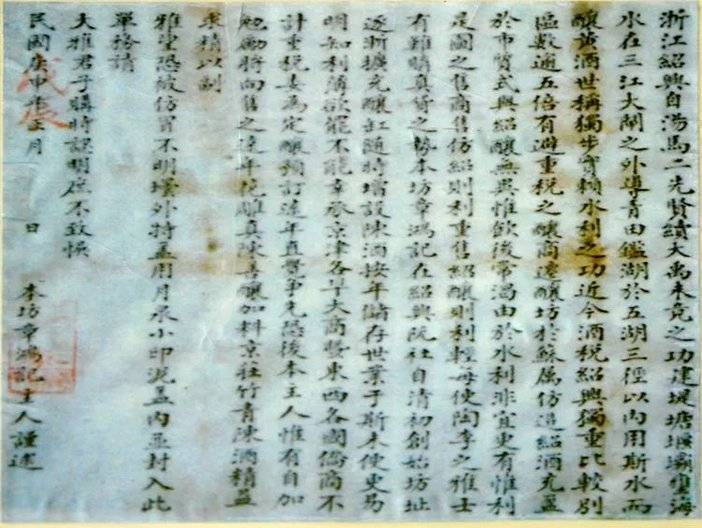 浙江紹興自湯馬二先賢續大禹未竟之功建堤塘堰壩壅海
水在三江大閘之外導青田鑑湖於五湖三徑以內用斯水而
釀黃酒世稱獨步實賴水利之功近今酒稅紹興獨重比較別
區數逾五倍有避重稅之釀商遷釀坊於蘇屬仿造紹酒充盈
於市質式與紹釀無異惟飲後常渴由於水利非宜更有惟利
是圖之售商售仿紹則利重售紹釀則利輕每使陶李之雅士
有難購真貨之勢本坊章鴻記在紹興阮社自清初創始坊址
逐漸擴充釀缸隨時增設陳酒按年儲存世業于斯未便更易
明知利薄欲罷不能幸承京津各埠大商暨東西各國僑商不
計重稅委為定釀預訂遠年直覺爭先恐後本主人惟有自加
勉勵將向售之遠年花雕真陳善釀加料京莊竹青陳酒精益
求精以副
雅望恐被仿冒不明壜外特蓋用月泉小印泥蓋內並封入此
單務請
大雅君子購時認明庶不致悞
民國庚申年正月 日 本坊章鴻記主人謹述
戊辰